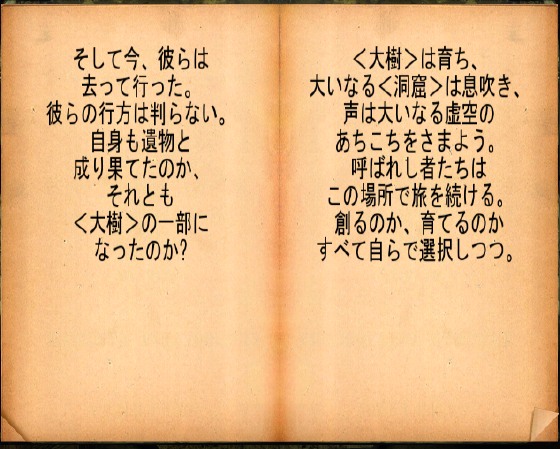 そして今、彼らは
去って行った。
彼らの行方は判らない。
自身も遺物と
成り果てたのか、
それとも
＜大樹＞の一部に
なったのか?
＜大樹＞は育ち、
大いなる＜洞窟＞は息吹き、
声は大いなる虚空の
あちこちをさまよう。
呼ばれし者たちは
この場所で旅を続ける。
創るのか、育てるのか
すべて自らで選択しつつ。